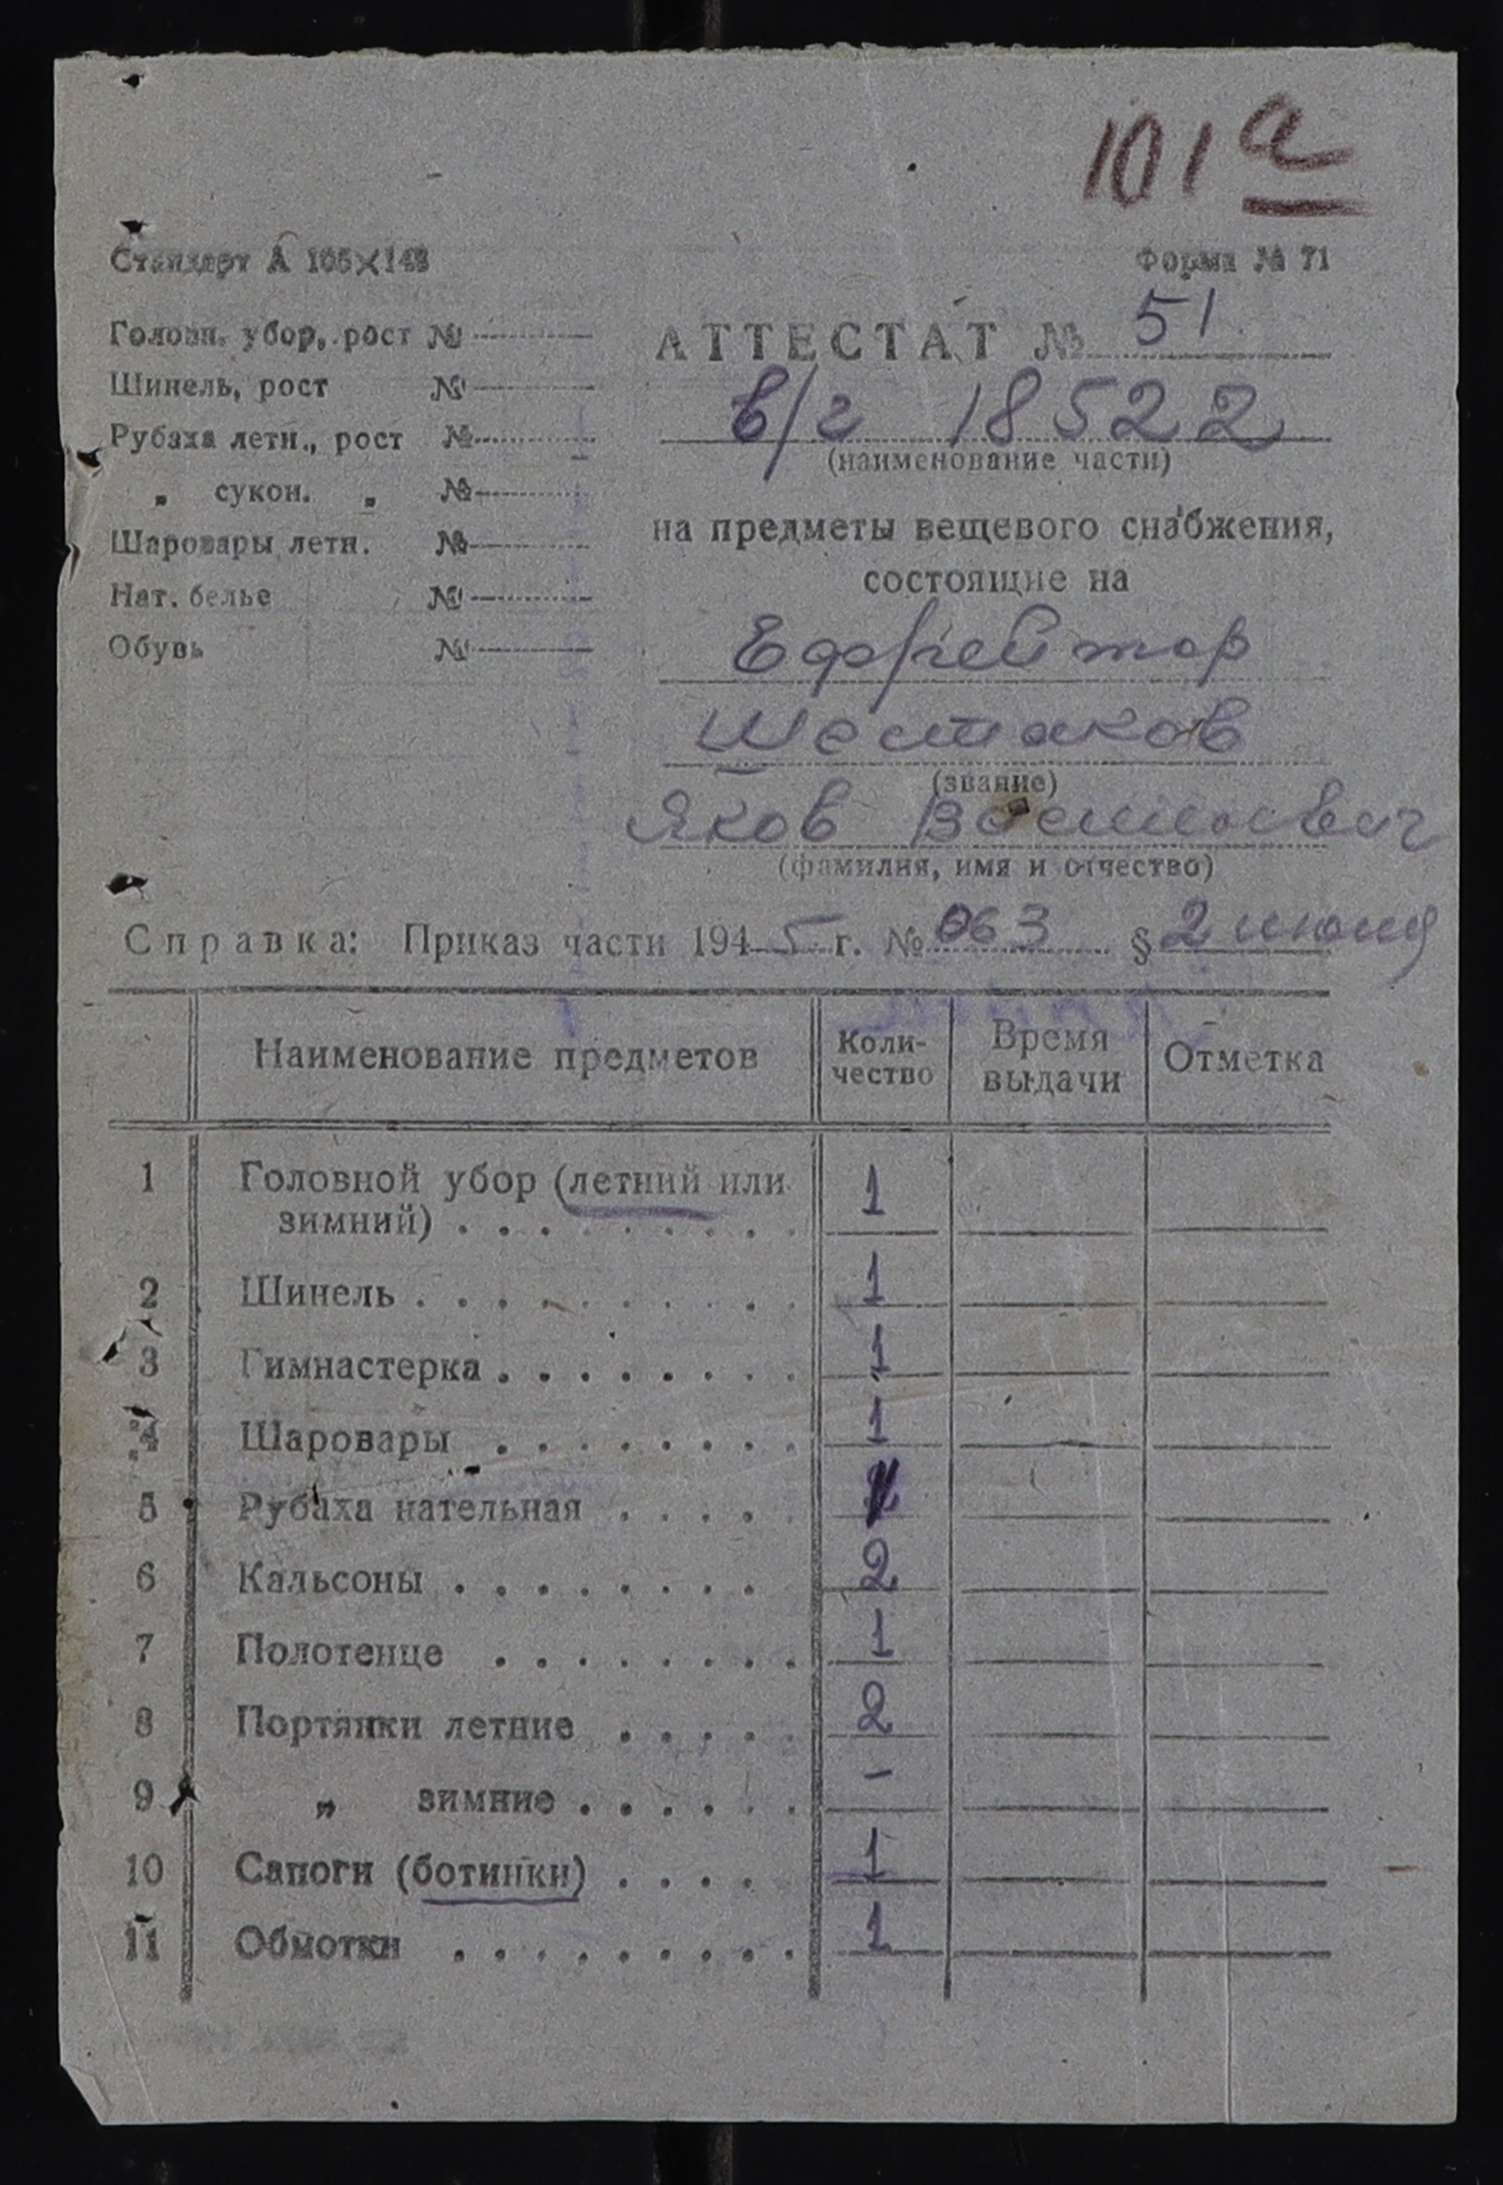 101а
Стандарт А 105×148
Форма № 71
Головн. убор, рост №
Шинель, рост №
Рубаха летн., рост №
„ сукон. „ №
Шаровары летн. №
Нат. белье №
Обувь №
АТТЕСТАТ № 51
в/г 18522
(наименование части)
на предметы вещевого снабжения,
состоящие на
Ефрейтор
Шестаков
(звание)
Яков
(фамилия, имя и отчество)
Справка: Приказ части 1945 г. № 063 § 2 июля
Наименование предметов Коли-чество Время выдачи Отметка
1 Головной убор (летний или
зимний) . . . . . . . . . 1
2 Шинель . . . . . . . . . . 1
3 Гимнастерка . . . . . . . . 1
4 Шаровары . . . . . . . . 1
5 Рубаха нательная . . . . .
6 Кальсоны . . . . . . . . 2
7 Полотенце . . . . . . . . 1
8 Портянки летние . . . . . 2
9 „ зимние . . . . . . -
10 Сапоги (ботинки) . . . . 1
11 Обмотки . . . . . . . . . 1